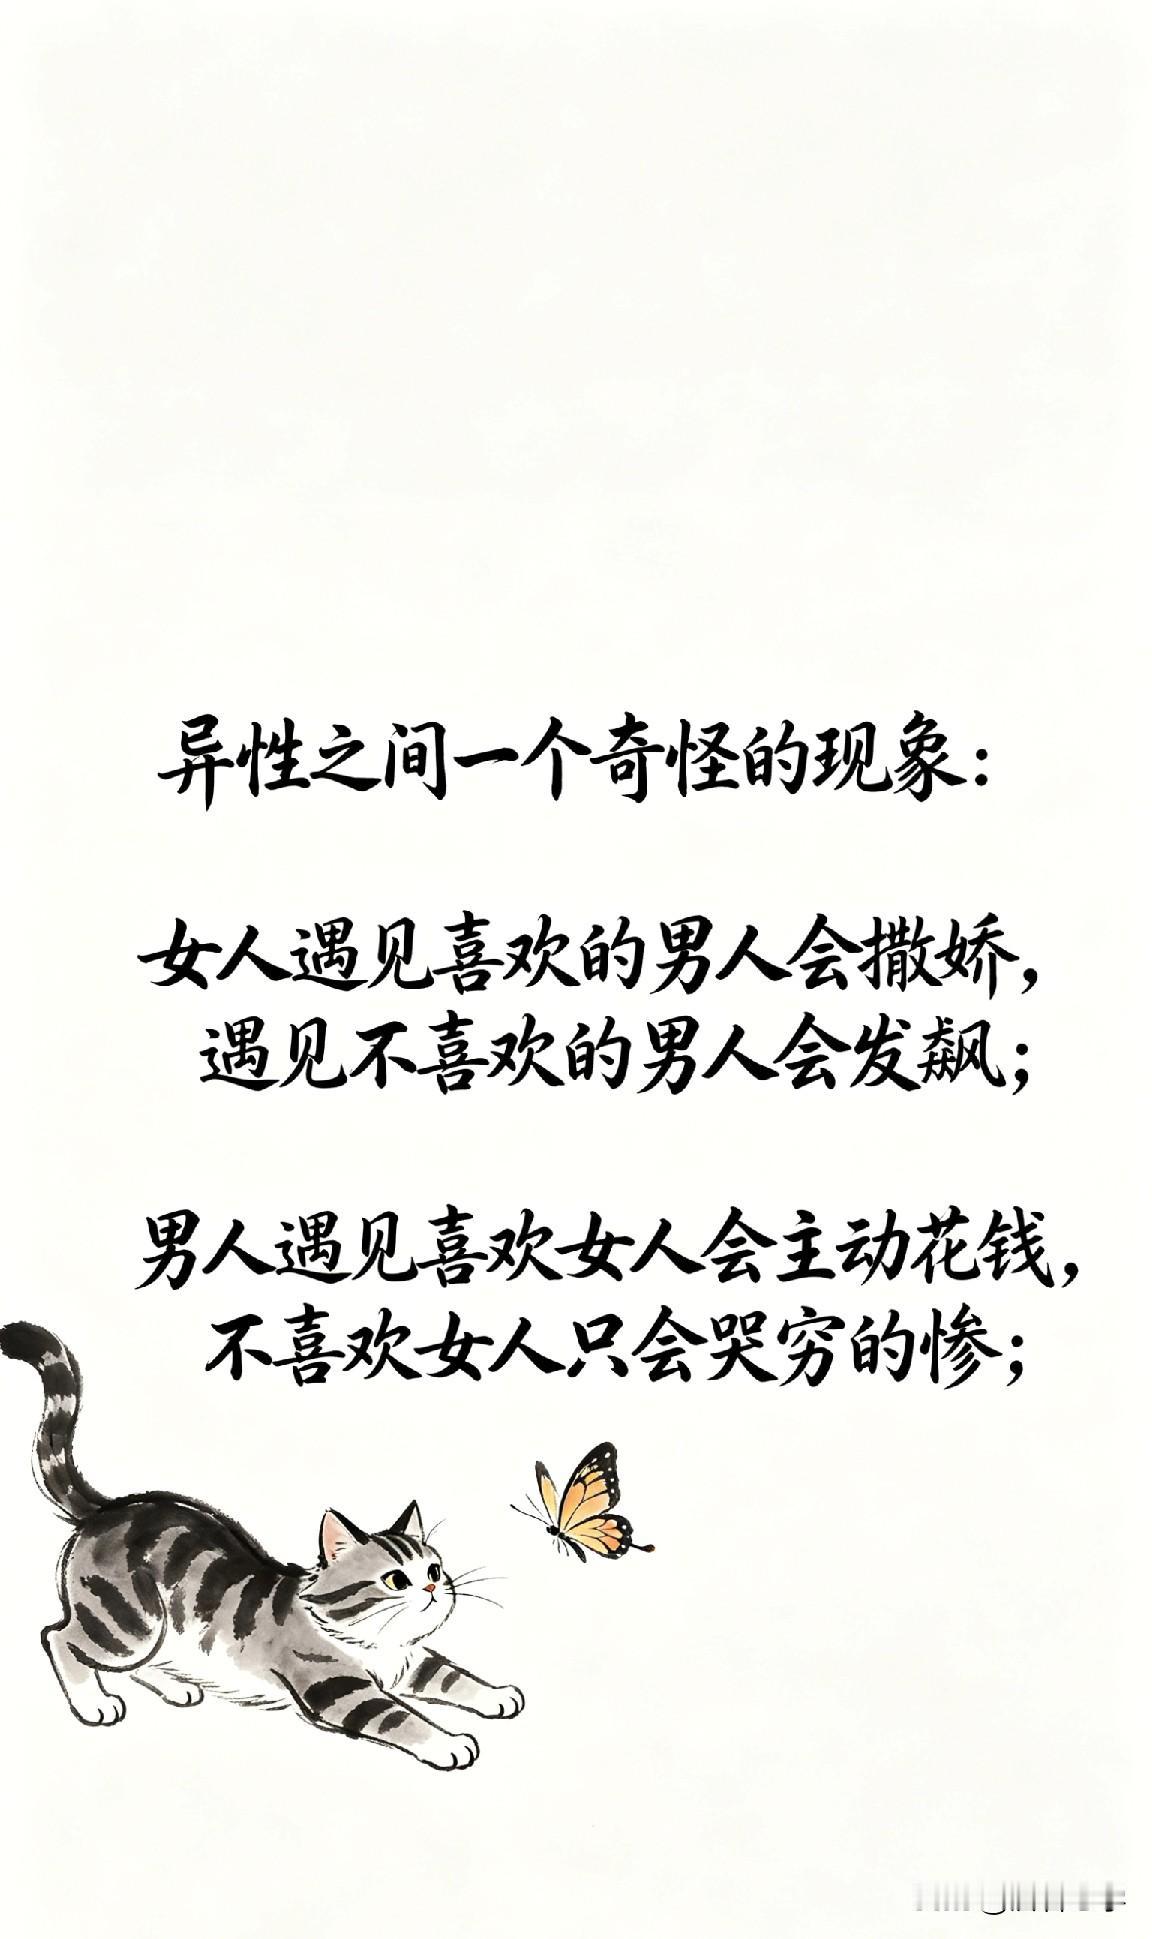 异性之间一个奇怪的现象：
女人遇见喜欢的男人会撒娇，
遇见不喜欢的男人会发飙；
男人遇见喜欢女人会主动花钱，
不喜欢女人只会哭穷的惨；